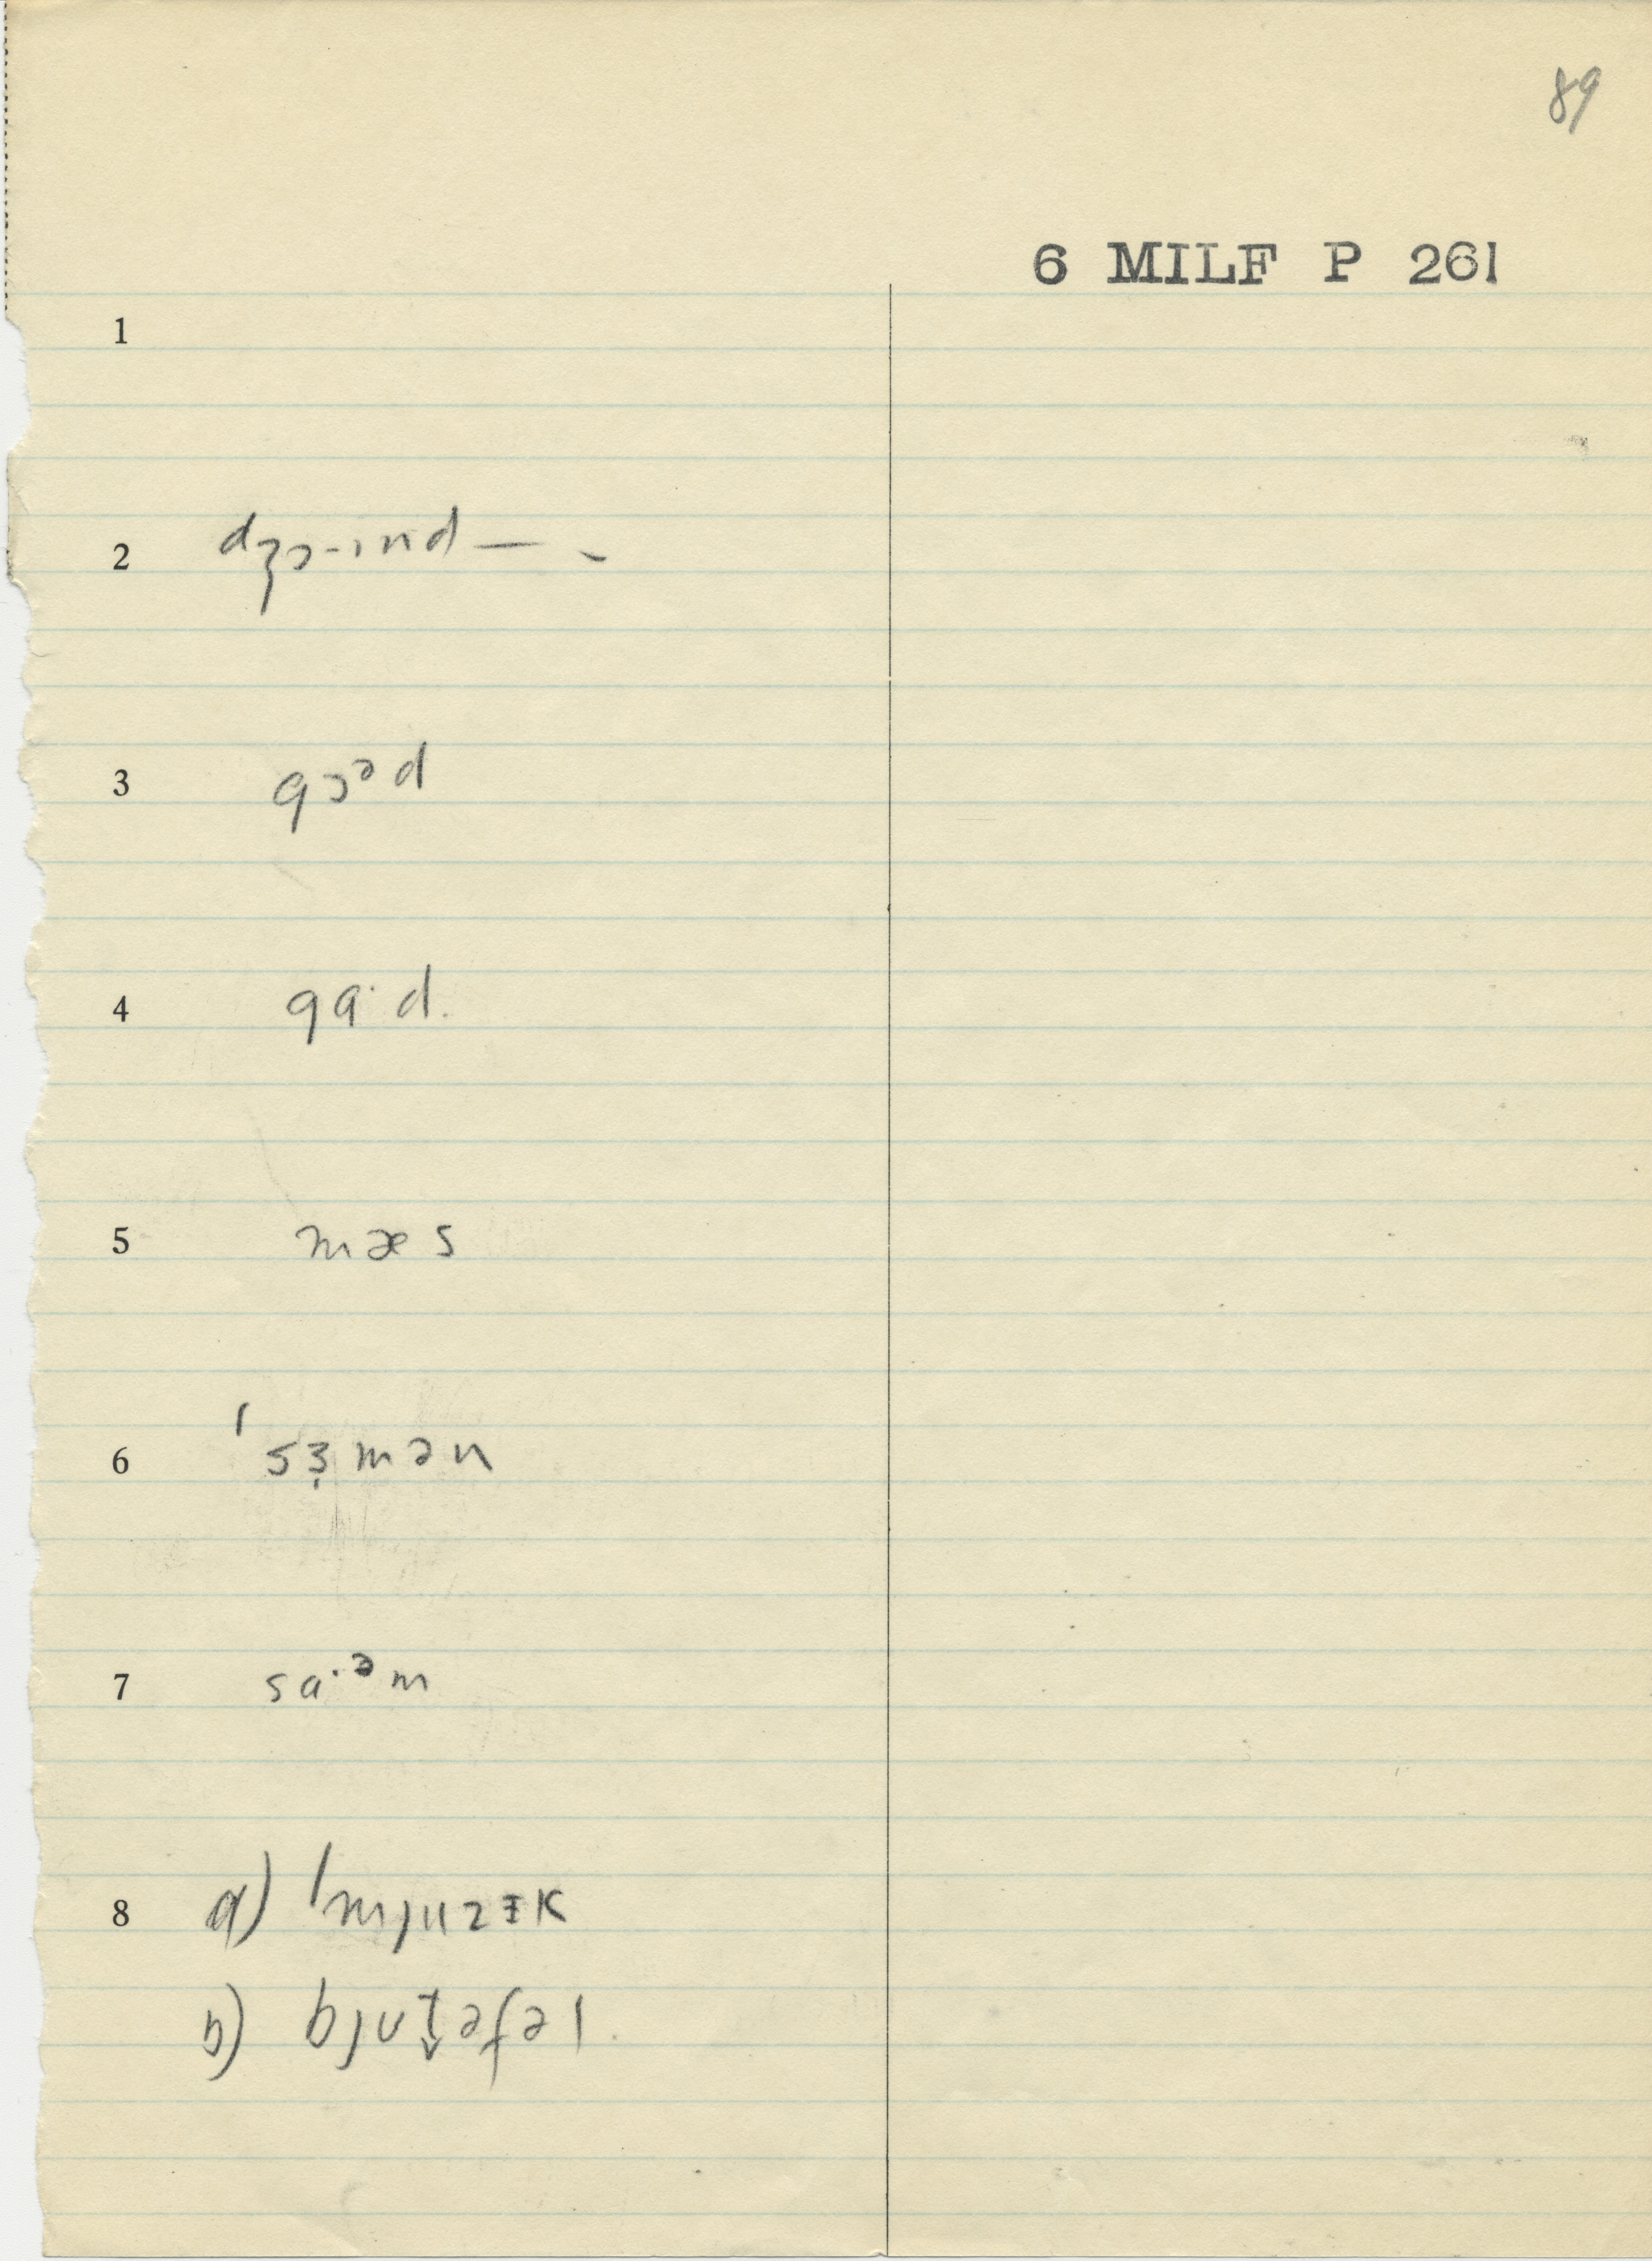 89
6 MILF P 261
1
2 dʒɔ-ɪnd — -
3 gɔᵊd
4 gɑ·d.
5 mæs
6 ˈsɜ̣mən
7 sɑ·ᵊm
8 a) ˈmjuzɪk
b) bjut̬əfəl.